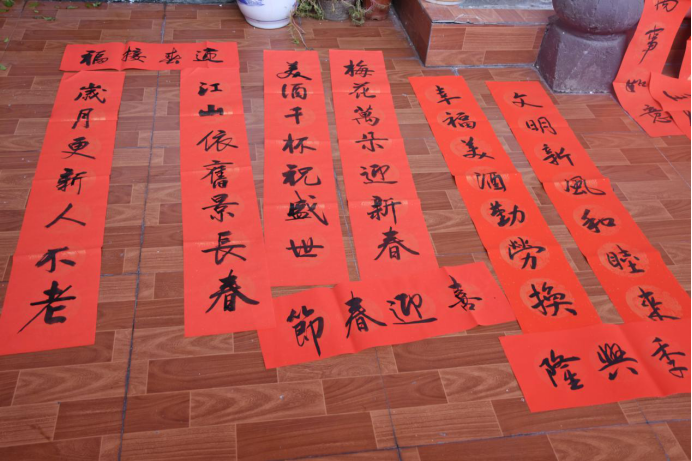 迎春接福
江山依舊景長春
歲月更新人不老
梅花萬朵迎新春
美酒千杯祝盛世
喜迎春節
文明新風和睦來
幸福美酒勤勞換
季興隆
事